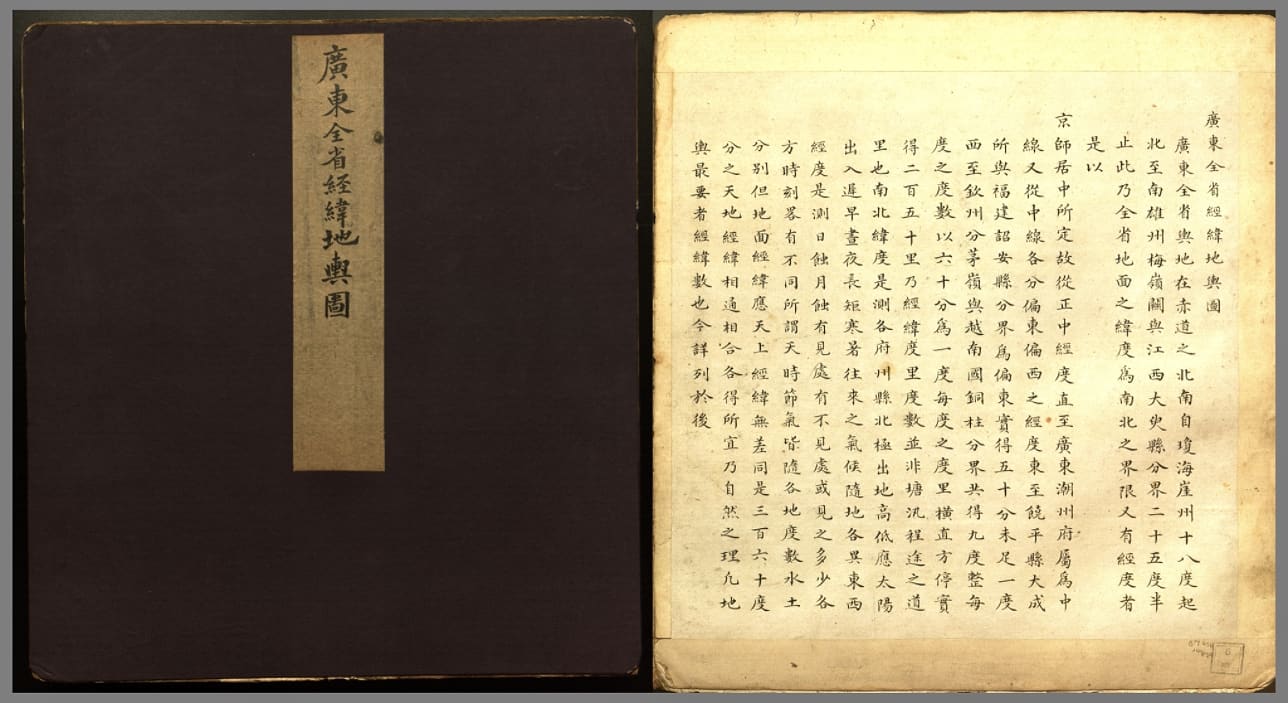 廣東全省経緯地輿圖
廣東全省經緯地輿圖
廣東全省輿地在赤道之北南自瓊海崖州十八度起
北至南雄州梅嶺關與江西大臾縣分界二十五度半
止此乃全省地面之緯度爲南北之界限又有經度者
是以
京師居中所定故從正中經度直至廣東潮州府屬爲中
線又從中線各分偏東偏西之經度東至饒平縣大成
所與福建詔安縣分界爲偏東實得五十分未足一度
西至欽州分茅嶺與越南國銅柱分界共得九度整每
度之度數以六十分爲一度每度之度里橫直方停實
得二百五十里乃經緯度里度數並非塘汛程途之道
里也南北緯度是測各府州縣北極出地高低應太陽
出入遲早晝夜長短寒暑往來之氣候隨地各異東西
經度是測日蝕月蝕有見處有不見處或見之多少各
方時刻畧有不同所謂天時節氣皆隨各地度數水土
分別但地面經緯應天上經緯無差同是三百六十度
分之天地經緯相通相合各得所宜乃自然之理凡地
輿最要者經緯數也今詳列於後